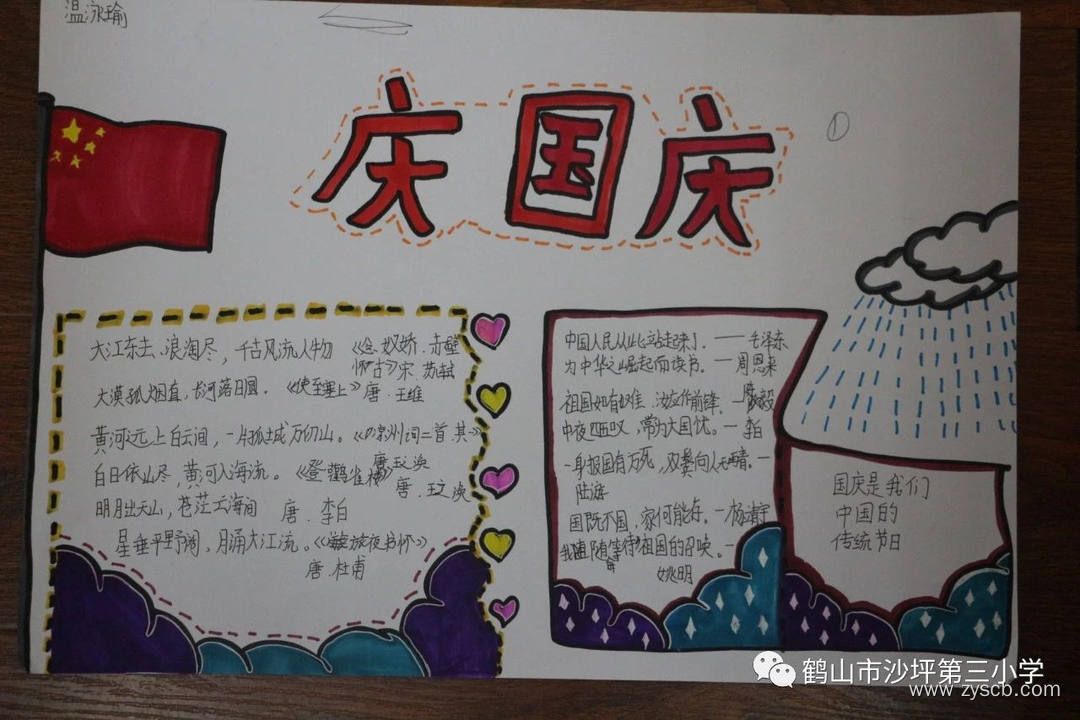 温泳瑜
庆国庆
①
大江东去、浪淘尽，千古风流人物 《念奴娇·赤壁
怀古》宋·苏轼
大漠孤烟直，长河落日圆。《使至塞上》唐·王维
黄河远上白云间，一片孤城万仞山。《凉州词二首·其一》
唐·王之涣
白日依山尽，黄河入海流。《登鹳雀楼》唐·王之涣
明月出天山，苍茫云海间 唐·李白
星垂平野阔，月涌大江流。《旅夜书怀》
唐·杜甫
中国人民从此站起来了。——毛泽东
为中华之崛起而读书。—周恩来
祖国如有难，汝应作前锋。—陈毅
中夜四五叹，常为大国忧。—李白
一身报国有万死，双鬓向人无再青。—
陆游
国既不国，家何能存。—杨靖宇
我随时等待祖国的召唤。—
姚明
国庆是我们
中国的
传统节日
鹤山市沙坪第三小学
www.zyscb.com